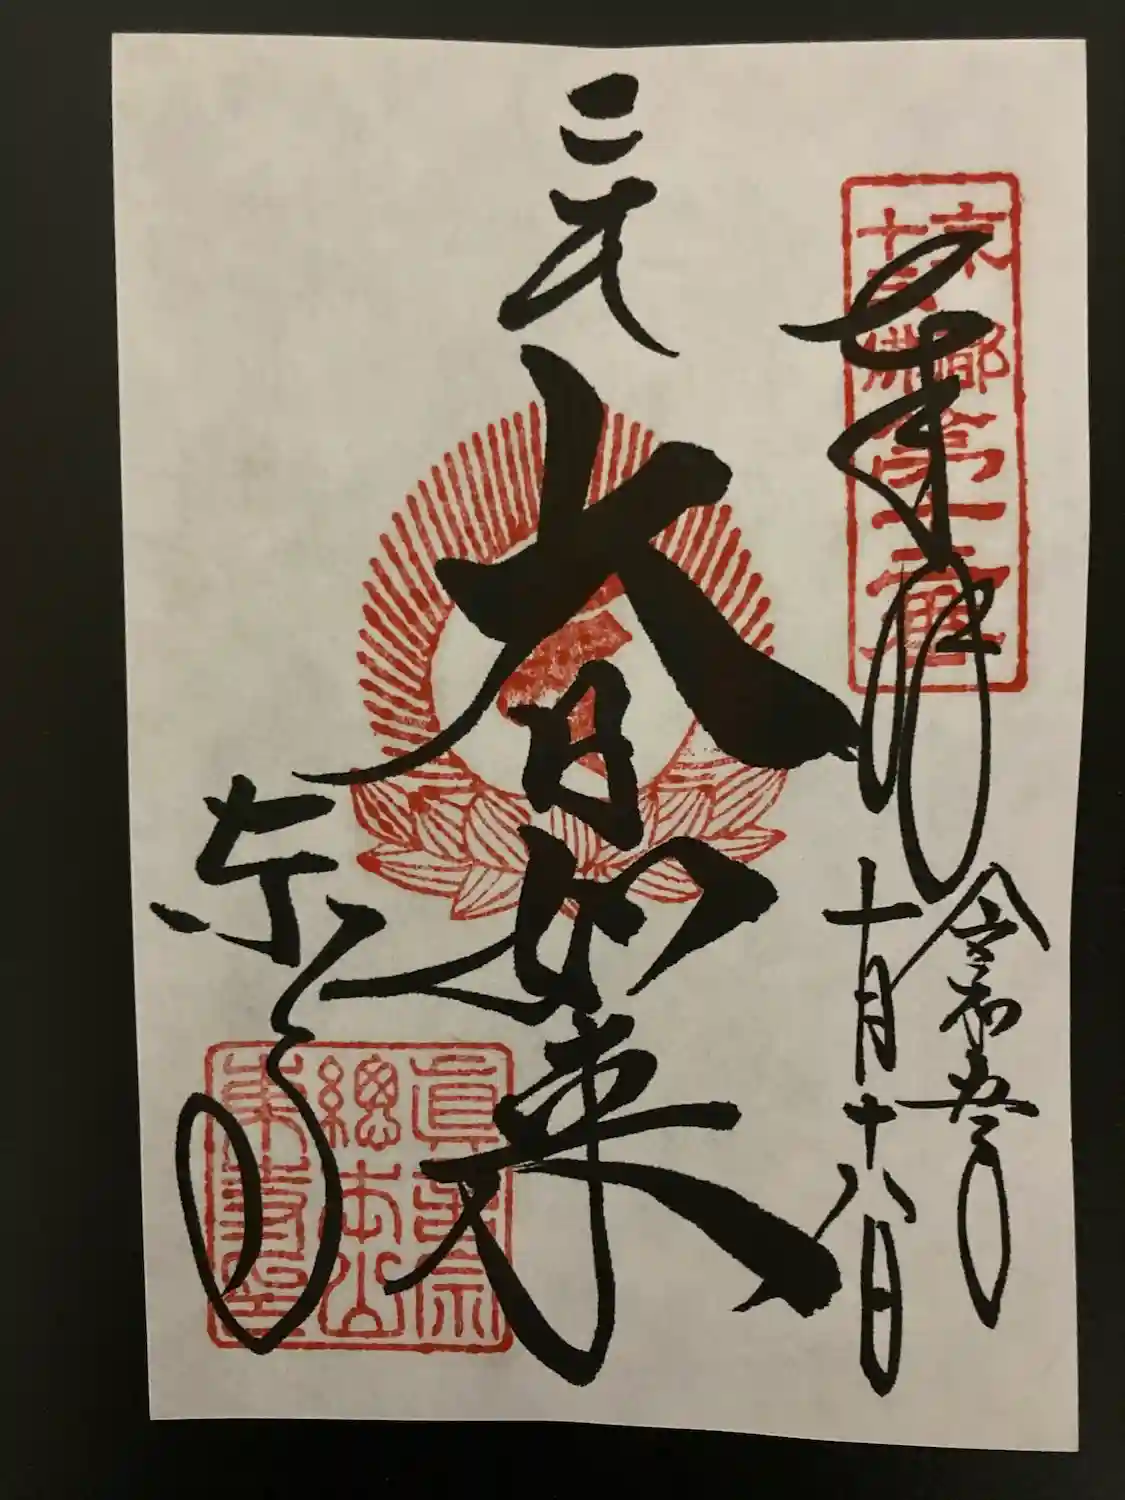 京都
十三佛
第十二番
奉拝
令和五年
十月十八日
大日如来
東寺
眞言宗
總本山
東寺印